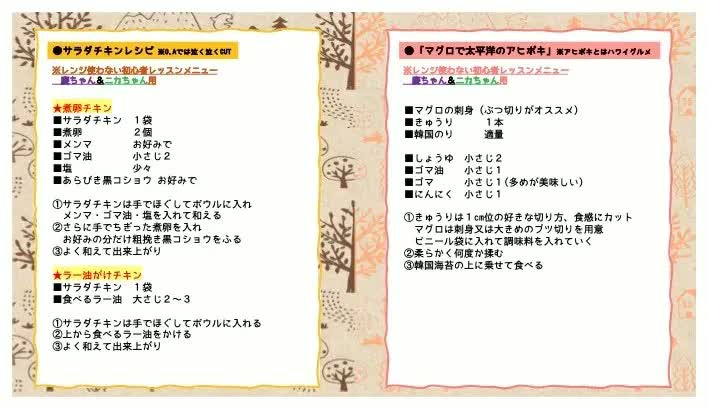 ●サラダチキンレシピ ※O.Aでは泣く泣くCUT
※レンジ使わない初心者レッスンメニュー
慶ちゃん&ニカちゃん用
★煮卵チキン
■サラダチキン 1袋
■煮卵 2個
■メンマ お好みで
■ゴマ油 小さじ2
■塩 少々
■あらびき黒コショウ お好みで
①サラダチキンは手でほぐしてボウルに入れ
メンマ・ゴマ油・塩を入れて和える
②さらに手でちぎった煮卵を入れ
お好みの分だけ粗挽き黒コショウをふる
③よく和えて出来上がり
★ラー油がけチキン
■サラダチキン 1袋
■食べるラー油 大さじ2～3
①サラダチキンは手でほぐしてボウルに入れる
②上から食べるラー油をかける
③よく和えて出来上がり
●「マグロで太平洋のアヒポキ」※アヒポキとはハワイグルメ
※レンジ使わない初心者レッスンメニュー
慶ちゃん&ニカちゃん用
■マグロの刺身（ぶつ切りがオススメ）
■きゅうり 1本
■韓国のり 適量
■しょうゆ 小さじ2
■ゴマ油 小さじ1
■ゴマ 小さじ1(多めが美味しい)
■にんにく 小さじ1
①きゅうりは1㎝位の好きな切り方、食感にカット
マグロは刺身又は大きめのブツ切りを用意
ビニール袋に入れて調味料を入れていく
②柔らかく何度か揉む
③韓国海苔の上に乗せて食べる